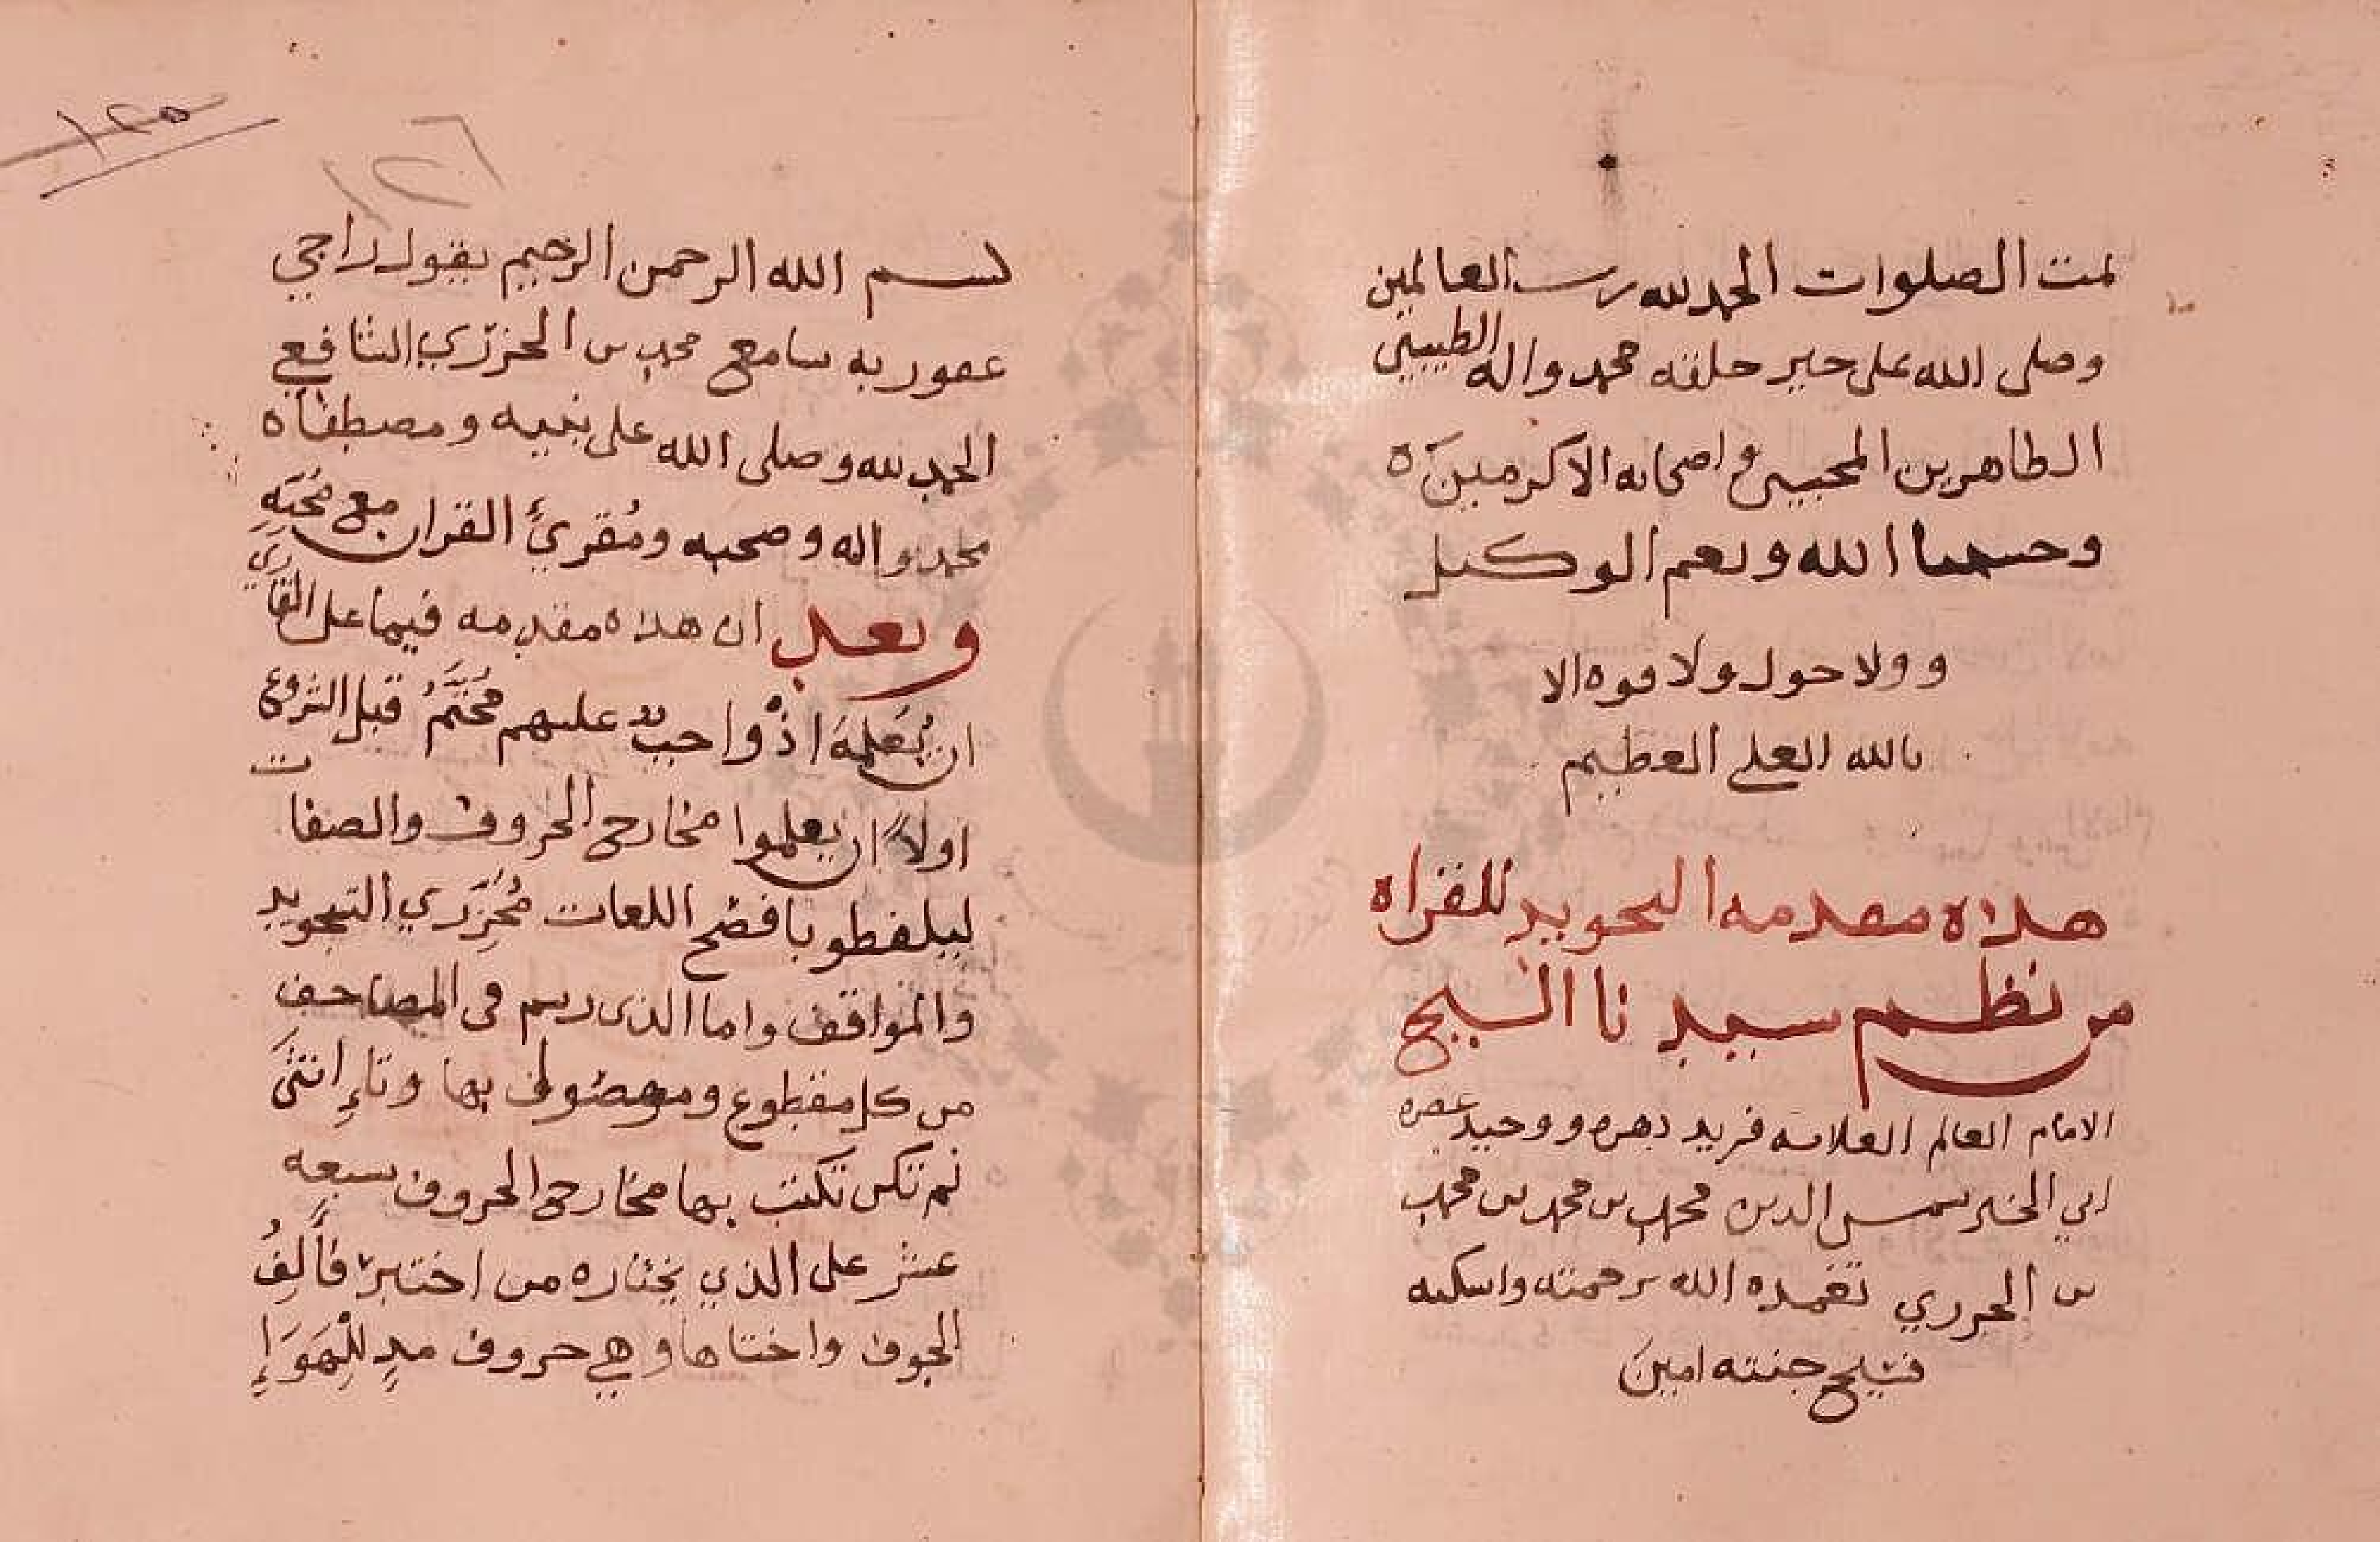 تمت الصلوات الحمد لله رب العالمين
وصلى الله على خير خلقه محمد واله الطيبين
الطاهرين المحبين واصحابه الاكرمين ه
وحسبنا الله ونعم الوكيل
و ولا حول ولا قوه الا
بالله العلي العظيم
هذه مقدمه التجويد للقراه
من نظم سيدنا الشيخ
الامام العالم العلامه فريد دهره ووحيد عصره
ابي الخير شمس الدين محمد بن محمد بن محمد
بن الجزري تغمده الله برحمته واسكنه
فسيح جنته امين
١٢٥
١٢٦
بسم الله الرحمن الرحيم يقول راجي
عفو ربه سامع محمد بن الجزري الشافعي
الحمد لله وصلى الله على نبيه ومصطفاه
محمد واله وصحبه ومُقريُ القران مع مُحبَهِ
وبعد ان هذه مقدمه فيما على القاري
ان يُعَلمهَ اذْ واجبٌ عليهم مُحَتَّمُ قبل الشروع
اولاً ان يعلموا مخارج الحروف والصفات
ليلفظو بافصح اللغات مُحَرِّرَي التجويد
والمواقف واما الذي رسم في المصاحف
من كل مقطوع وموصول بها وتاءِ انثىَ
لم تكن تكتب بها مخارج الحروف سبعه
عشر على الذي يختاره من اختبر فاَلِفُ
الجوف واختاها وهي حروف مدٍ لِلْهَوَاءِ